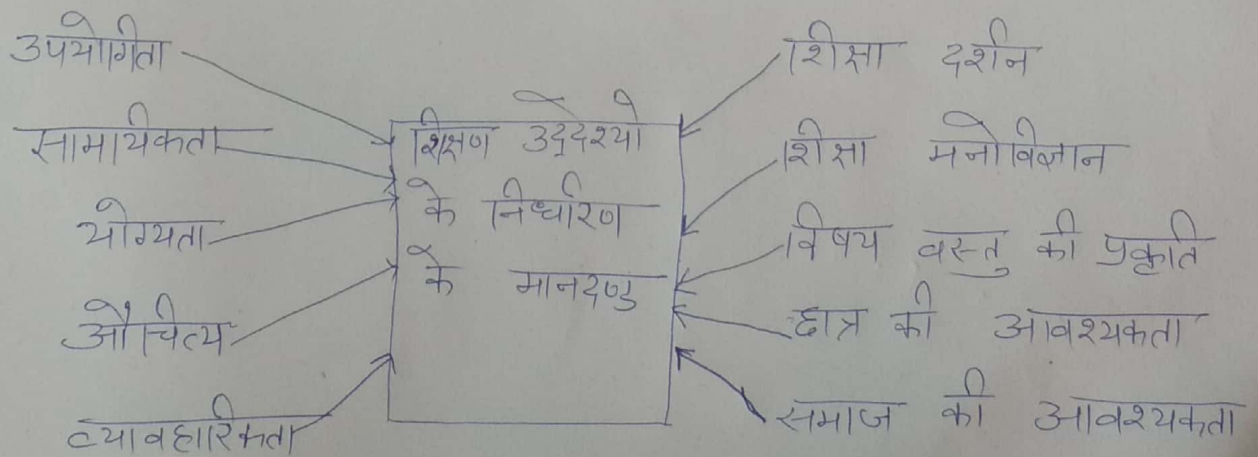 उपयोगिता
सामायिकता
योग्यता
औचित्य
व्यावहारिकता
शिक्षण उद्देश्यो
के निर्धारण
के मानदण्ड
शिक्षा दर्शन
शिक्षा मनोविज्ञान
विषय वस्तु की प्रकृति
छात्र की आवश्यकता
समाज की आवश्यकता